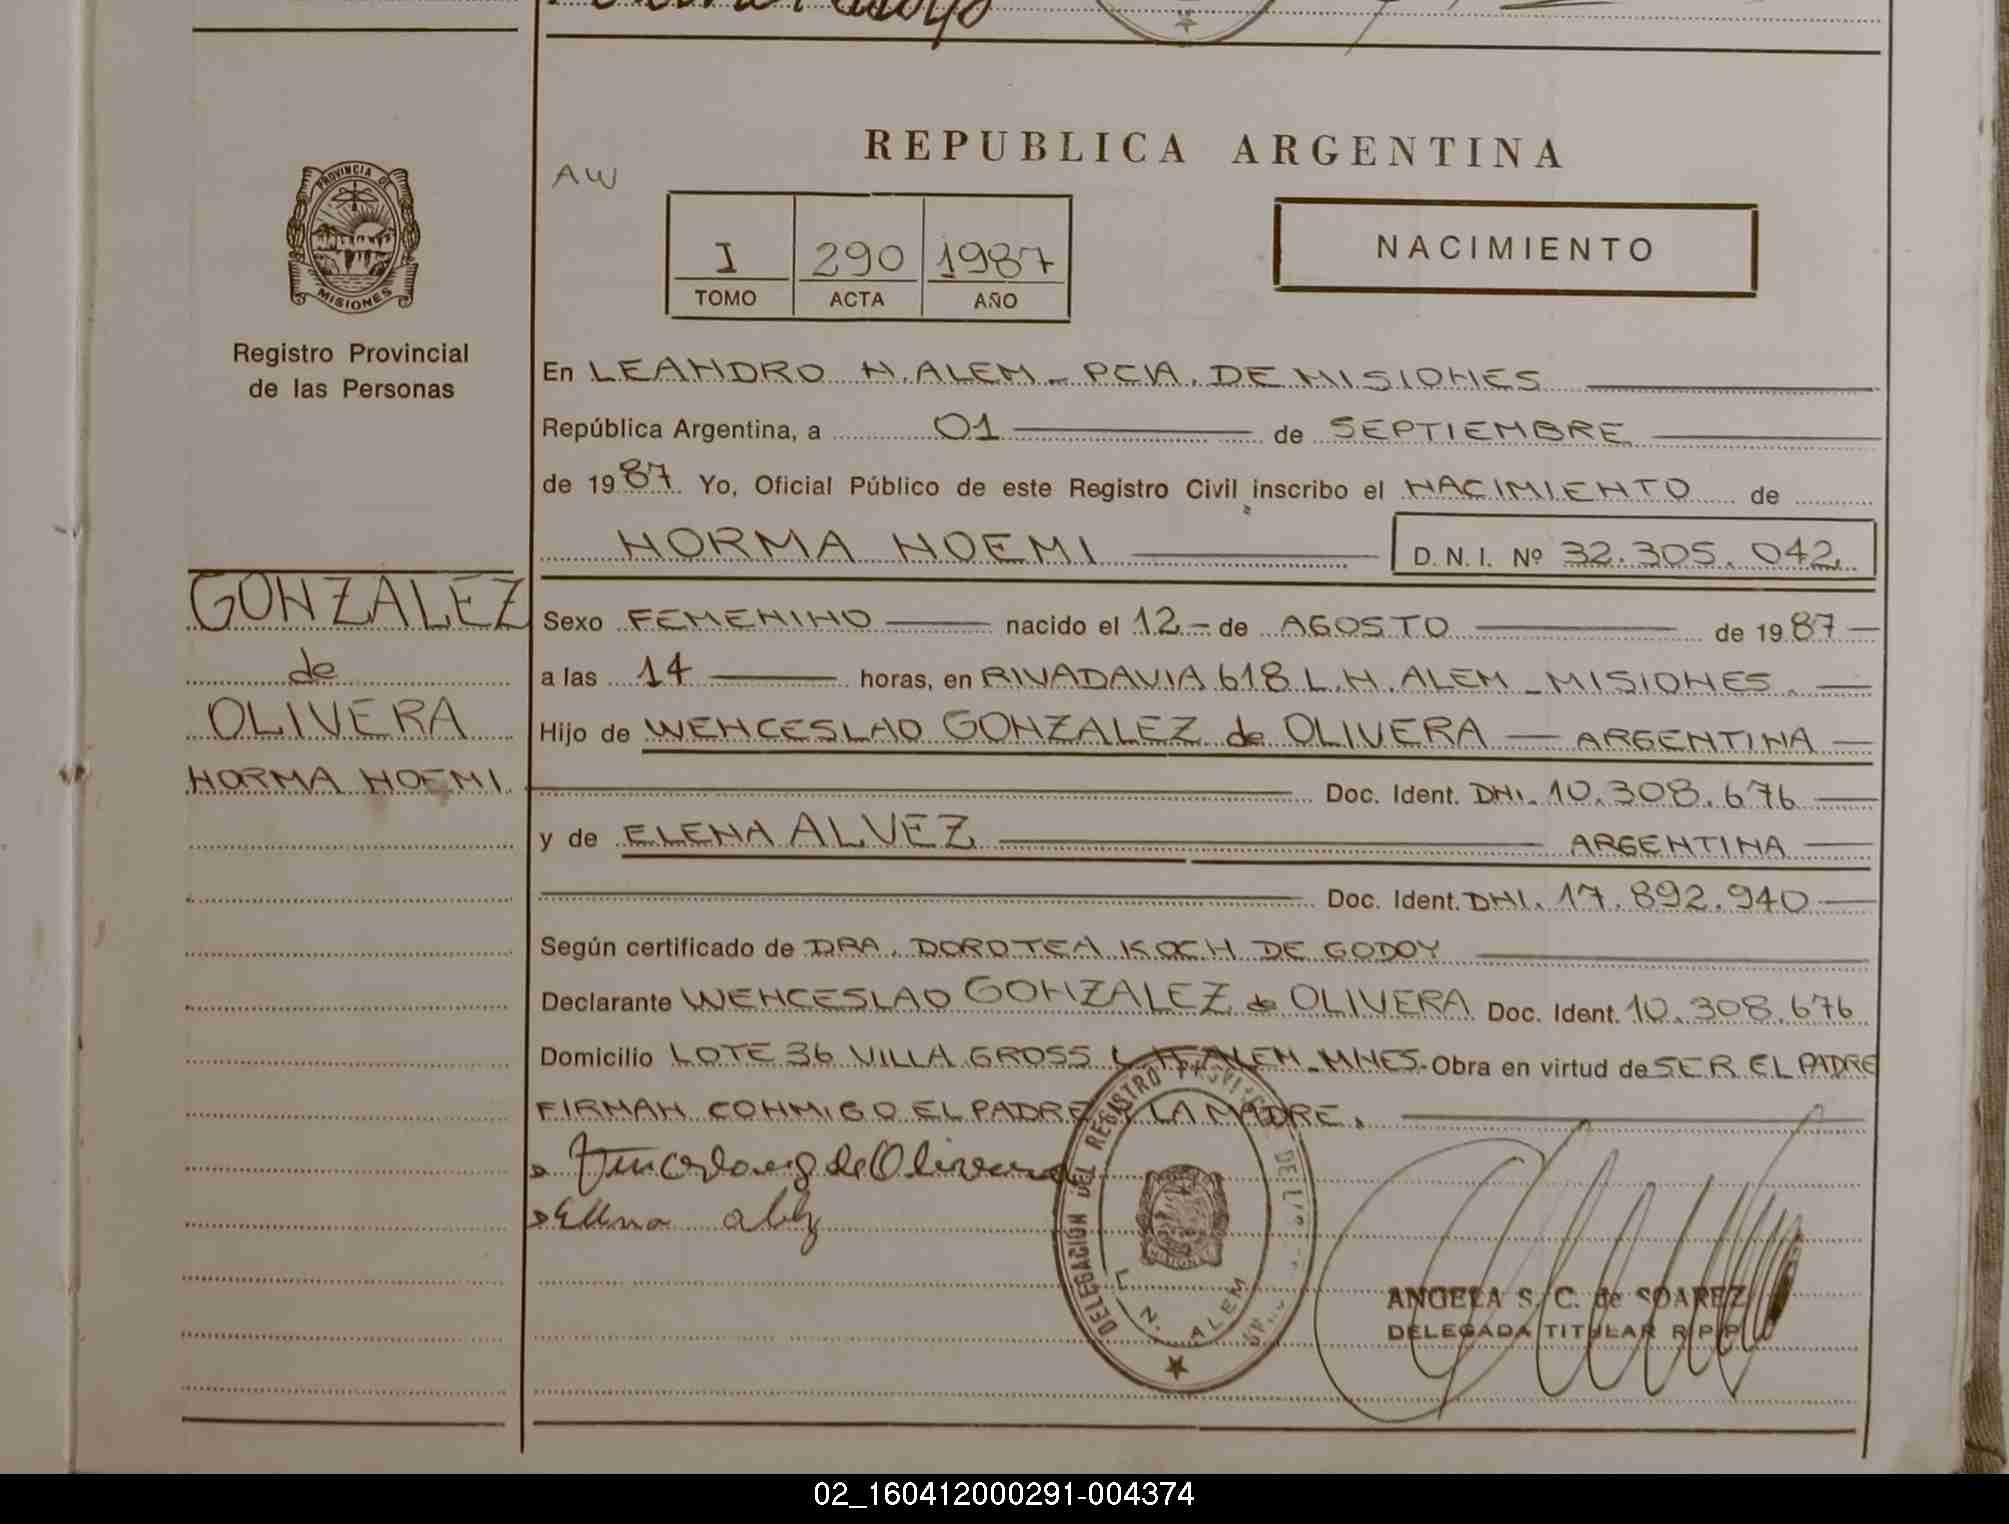 REPUBLICA ARGENTINA
AW
PROVINCIA DE
MISIONES
I 290 1987
TOMO ACTA AÑO
NACIMIENTO
Registro Provincial
de las Personas
En LEANDRO N. ALEM - PCIA. DE MISIONES
República Argentina, a 01 de SEPTIEMBRE
de 1987. Yo, Oficial Público de este Registro Civil inscribo el NACIMIENTO de
NORMA NOEMI D. N. I. Nº 32.305.042
GONZALEZ
de
OLIVERA
NORMA NOEMI
Sexo FEMENINO nacido el 12 - de AGOSTO de 1987
a las 14 horas, en RIVADAVIA 618 L.N. ALEM - MISIONES.
Hijo de WENCESLAO GONZALEZ de OLIVERA — ARGENTINA
Doc. Ident. DNI. 10.308.676
y de ELENA ALVEZ ARGENTINA
Doc. Ident. DNI. 17.892.940
Según certificado de DRA. DOROTEA KOCH DE GODOY
Declarante WENCESLAO GONZALEZ de OLIVERA Doc. Ident. 10.308.676
Domicilio LOTE 36 VILLA GROSS L.N. ALEM - MNES. Obra en virtud de SER EL PADRE
FIRMAN CONMIGO EL PADRE Y LA MADRE.
de Olivera
Elena
DELEGACIÓN DEL REGISTRO PROVINCIAL DE LAS
L. N. ALEM
ANGELA S. C. de SOAREZ
DELEGADA TITULAR R.P.P.
02_160412000291-004374